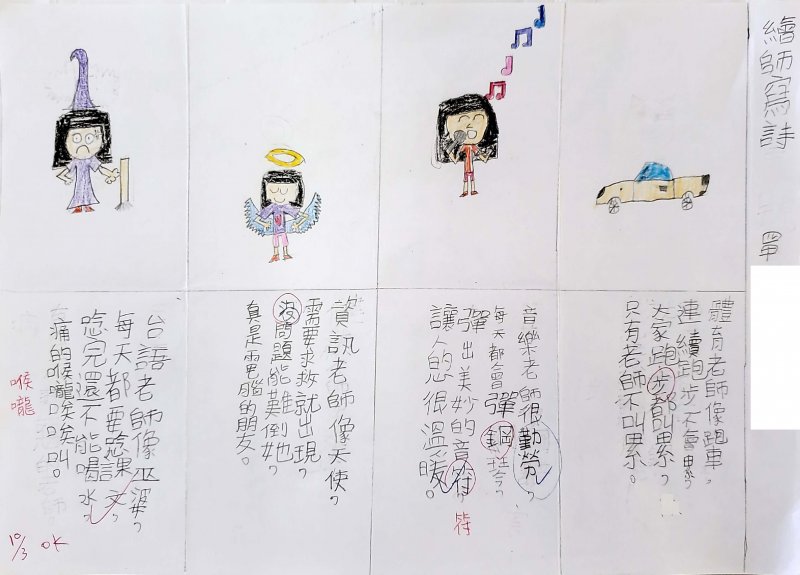 繪師寫詩
單
體育老師像跑車，
連續跑步不會累，
大家跑步都叫累，
只有老師不叫累。
音樂老師很勤勞，
每天都會彈鋼琴，
彈出美妙的音符，
讓人感很溫暖。
符
資訊老師像天使，
需要求救就出現，
沒問題能難倒她，
真是電腦的朋友。
台語老師像巫婆，
每天都要唸課文，
唸完還不能喝水，
痛的喉嚨唉唉叫。
喉嚨
10/3 OK